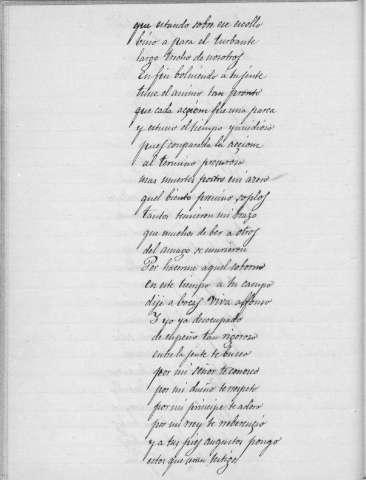 que estando sobre ese escollo
bino a para el turbante
largo trecho de nosotros
En fin bolviendo a tu jente
tube el animo tan pronto
que cada aczion fue una parca
y estuvo el tiempo
pues comparada la aczion
al termino
mas muertes postro mi azero
quel biento soplos
tanto temieron mi brazo
que muchos de ber a otros
del amago se murieron
Por hacerme aquel soborno
en este tiempo a tu campo
dije a bozes viva alfonso
Y yo ya desocupado
de empeño tan rigoroso
entre la jente te busco
por mi señor te conozco
por mi dueño te respeto
por mi principe te adoro
por mi rey te reberenzio
y a tus pies augustos pongo
estos que